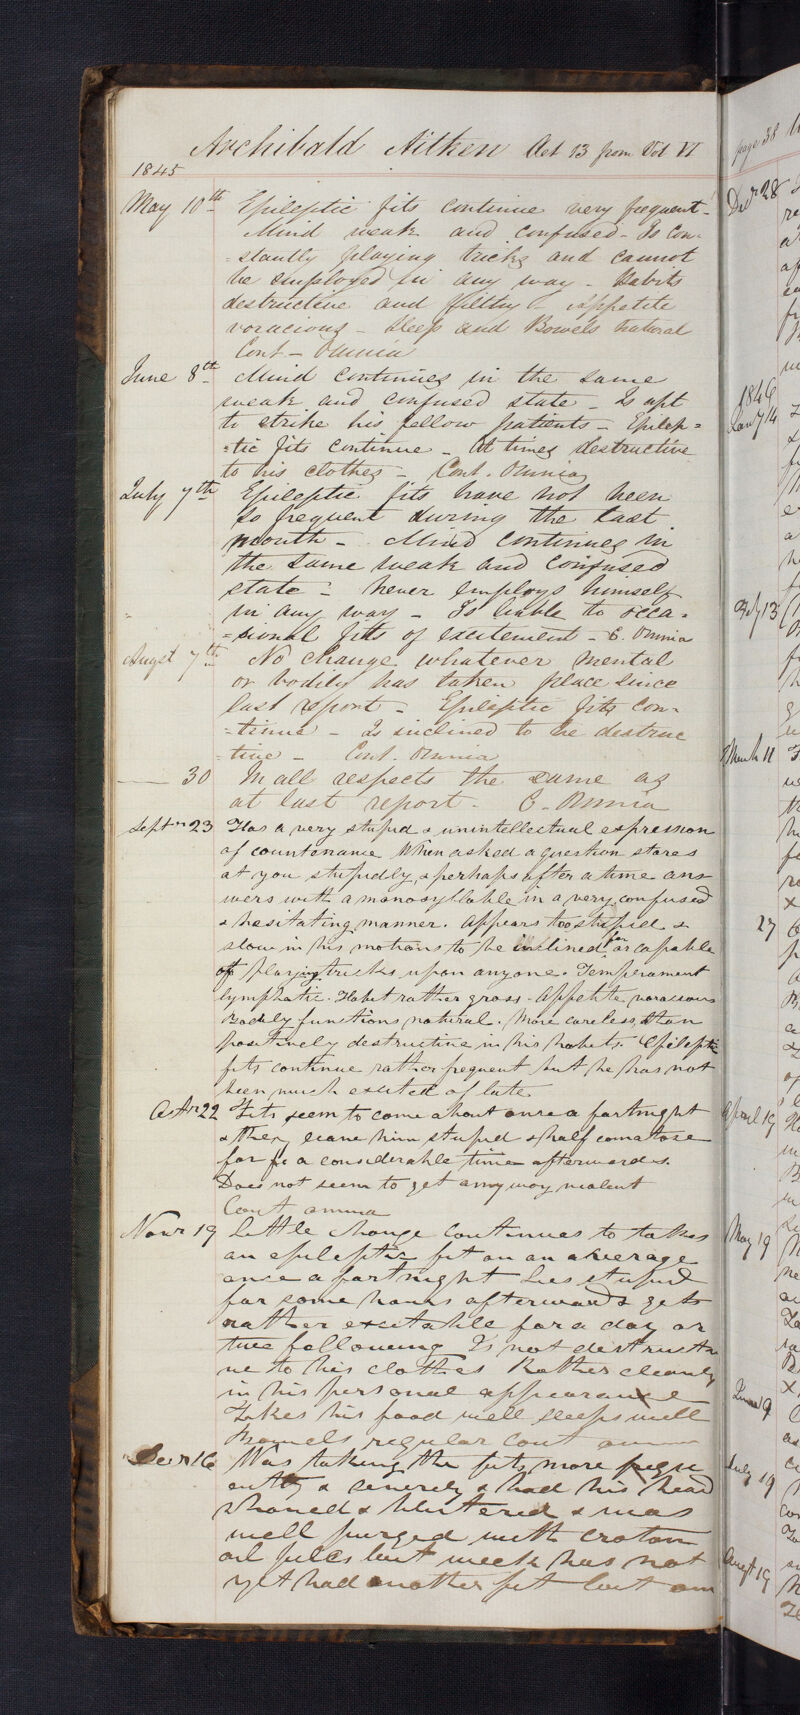 Archibald Aitken Oct 13 from Vol VI
1845
May 10th Epileptic fits continue very frequent -
Mind weak and confused - Is con-
=stantly playing tricks and cannot
be employed in any way - Habits
destructive and filthy - Appetite
voracious - Sleep and Bowels natural
Cont - Omnia
June 8th Mind continues in the same
weak and confused state - Is apt
to strike his fellow patients - Epilep=
=tic fits continue - At times destructive
to his clothes - Cont. Omnia
July 7th Epileptic fits have not been
so frequent during the last
month - Mind continues in
the same weak and confused
state - never employs himself
in any way - Is liable to occa-
=sional fits of excitement - C. Omnia
Augst 7th No change whatever mental
or bodily has taken place since
last report - Epileptic fits con-
=tinue - Is inclined to be destruc
=tive - Cont. Omnia
30 In all respects the same as
at last report - C. Omnia
Septr 23 Has a very stupid & unintellectual expression
of countenance When asked a question stares
at you stupidly, & perhaps after a time ans
wers with a monosyllable in a very confused
& hesitating manner. Appears too stupid &
slow in his motions to be inclined for or capable
of playing tricks upon anyone. Temperament
lymphatic. Habit rather gross. Appetite voracious
Bodily functions natural. More careless than
positively destructive in his habits. Epileptic
fits continue rather frequent but he has not
been much excited of late
Octr 22 Fits seem to come about once a fortnight
& they leave him stupid & half comatose
for a considerable time afterwards.
Does not seem to get any way violent
Cont omnia
Novr 19 Little change Continues to take
an epileptic fit on an average
once a fortnight Lies stupid
for some hours afterwards & gets
rather excitable for a day or
two following Is not destructi
ve to his clothes Rather cleanly
in his personal appearance
Takes his food well sleeps well
Bowels regular Cont omnia
Decr 16 Was taking the fits more frequ
ently & severely & had his head
shaved & blistered & was
well purged with croton
oil pills last week has not
yet had another fit Cont om
page 38
Decr 28
1846
Jany 14
Feby 13
March 11
27
April 19
May 19
June 9
July 19
Augt 19